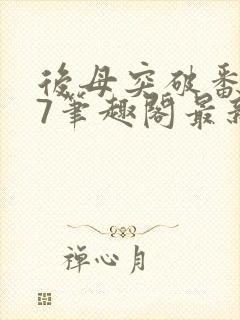 後母突破番
7筆趣閣最新
禪心月